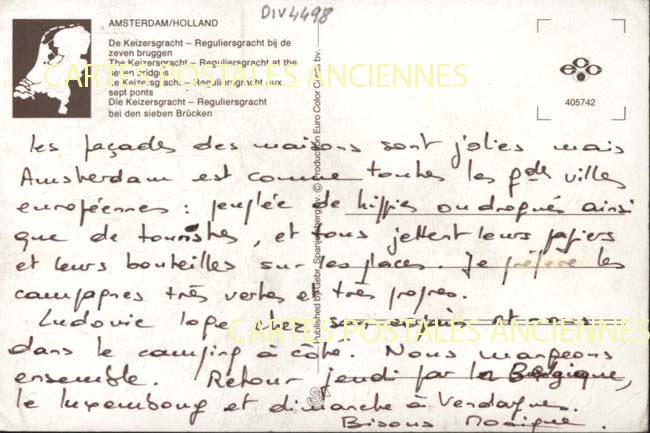 DIV4498
AMSTERDAM/HOLLAND
De Keizersgracht – Reguliersgracht bij de
zeven bruggen
The Keizersgracht – Reguliersgracht at the
seven bridges
Le Keizersgracht – Reguliersgracht aux
sept ponts
Die Keizersgracht – Reguliersgracht
bei den sieben Brücken
405742
CARTES POSTALES ANCIENNES
Published by Gebr. Spanjersberg bv. © Production Euro Color Cards bv.
Les façades des maisons sont jolies mais
Amsterdam est comme toutes les gdes villes
européennes : peuplée de hippies ou drogués ainsi
que de touristes, et tous jettent leurs papiers
et leurs bouteilles sur les places. Je préfère les
campagnes très vertes et très propres.
Ludovic loge chez et nous
dans le camping à côté. Nous mangeons
ensemble. Retour jeudi par la Belgique,
le Luxembourg et dimanche à
Bisous
CARTES POSTALES ANCIENNES